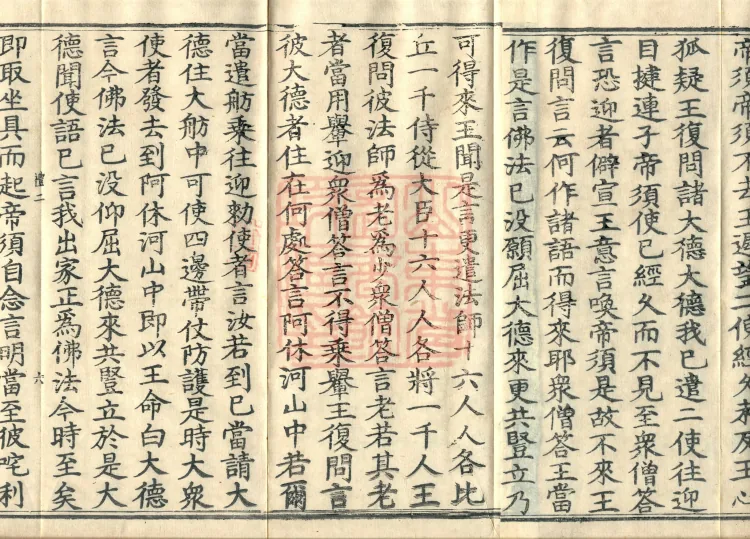 帝須帝須不去王遲望二使經久
狐疑王復問諸大德大德我已遣二使往迎
目揵連子帝須使已經久而不見至衆僧答
言恐迎者僻宣王意言喚帝須是故不來王
復問言云何作諸語而得來耶衆僧答王當
作是言佛法已没願屈大德來更共豎立乃
可得來王聞是言更遣法師十六人人各比
丘一千侍從大臣十六人人各將一千人王
復問彼法師爲老爲少衆僧答言老若其老
者當用轝迎衆僧答言不得乘轝王復問言
彼大德者住在何處答言阿休河山中若爾
當遣舫乘往迎勑使者言汝若到已當請大
德住大舫中可使四邊帶仗防護是時大衆
使者發去到阿休河山中即以王命白大德
言今佛法已没仰屈大德來共豎立於是大
德聞使語已言我出家正爲佛法今時至矣
禮二 六
即取坐具而起帝須自念言明當至彼吒利